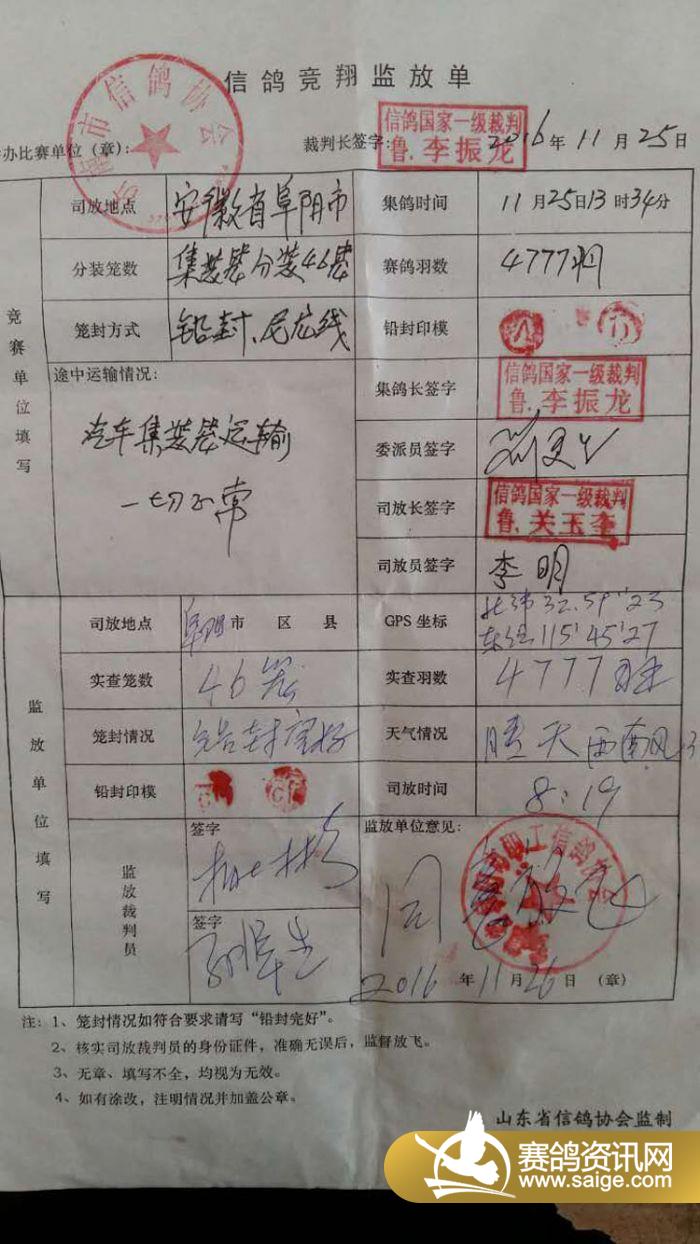 信鸽竞翔监放单
市信鸽协会
办比赛单位（章）：
裁判长签字：
信鸽国家一级裁判
鲁.李振龙
2016年11月25日
竞赛单位填写
司放地点
安徽省阜阳市
集鸽时间
11月25日13时34分
分装笼数
集装笼分装46笼
赛鸽羽数
4777羽
笼封方式
铅封、尼龙线
铅封印模
途中运输情况：
汽车集装笼运输
一切正常
集鸽长签字
信鸽国家一级裁判
鲁.李振龙
委派员签字
司放长签字
信鸽国家一级裁判
鲁.关玉奎
司放员签字
李明
监放单位填写
司放地点
阜阳市 区 县
GPS坐标
北纬32.59'23
东经115'45'27
实查笼数
46笼
实查羽数
4777羽
笼封情况
铅封完好
天气情况
晴天西南风
铅封印模
司放时间
8:19
监放裁判员
签字
签字
监放单位意见：
职工信鸽协会
同意放飞
2016年11月26日（章）
注：1、笼封情况如符合要求请写“铅封完好”。
2、核实司放裁判员的身份证件，准确无误后，监督放飞。
3、无章、填写不全，均视为无效。
4、如有涂改，注明情况并加盖公章。
山东省信鸽协会监制
赛鸽资讯网
www.saige.com